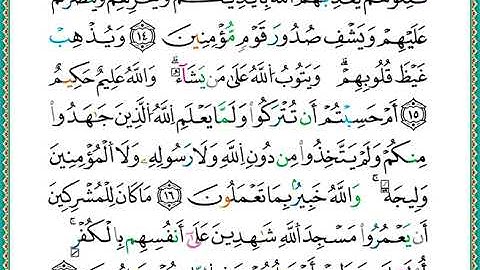 قَٰتِلُوهُمْ يُعَذِّبْهُمُ ٱللَّهُ بِأَيْدِيكُمْ وَيُخْزِهِمْ وَيَنصُرْكُمْ
عَلَيْهِمْ وَيَشْفِ صُدُورَ قَوْمٍ مُّؤْمِنِينَ ۝١٤ وَيُذْهِبْ
غَيْظَ قُلُوبِهِمْ ۗ وَيَتُوبُ ٱللَّهُ عَلَىٰ مَن يَشَآءُ ۗ وَٱللَّهُ عَلِيمٌ حَكِيمٌ
۝١٥ أَمْ حَسِبْتُمْ أَن تُتْرَكُوا۟ وَلَمَّا يَعْلَمِ ٱللَّهُ ٱلَّذِينَ جَٰهَدُوا۟
مِنكُمْ وَلَمْ يَتَّخِذُوا۟ مِن دُونِ ٱللَّهِ وَلَا رَسُولِهِۦ وَلَا ٱلْمُؤْمِنِينَ
وَلِيجَةً ۚ وَٱللَّهُ خَبِيرٌۢ بِمَا تَعْمَلُونَ ۝١٦ مَا كَانَ لِلْمُشْرِكِينَ
أَن يَعْمُرُوا۟ مَسَٰجِدَ ٱللَّهِ شَٰهِدِينَ عَلَىٰٓ أَنفُسِهِم بِٱلْكُفْرِ ۚ